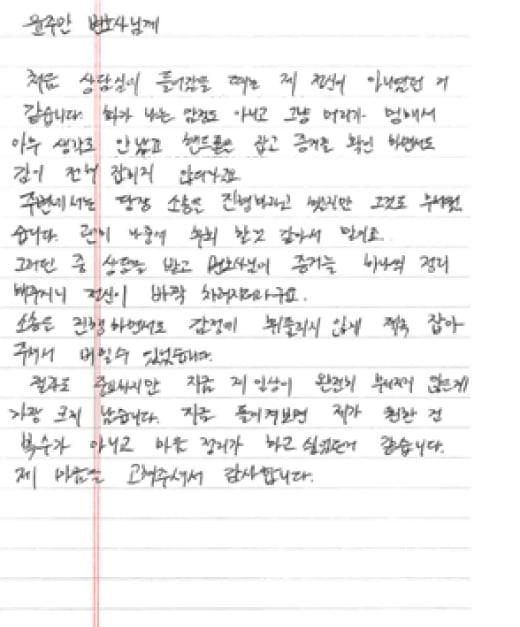 윤주만 변호사님께
처음 상담실에 들어갔을 때는 제 정신이 아니었던 거
같습니다. 화가 나는 감정도 아니고 그냥 머리가 멍해서
아무 생각도 안 났고 핸드폰을 잡고 증거를 확인 하면서도
감이 전혀 잡히지 않더라구요
주변에서는 당장 소송을 진행하라고 했지만 그것도 무서웠
습니다. 괜히 나중에 후회 할것 같아서 말이죠.
그러던 중 상담을 받고 변호사님이 증거를 하나씩 정리
해주시니 정신이 바짝 차려지더라구요.
소송을 진행하면서도 감정에 휘둘리지 않게 계속 잡아
주셔서 버틸수 있었습니다.
결과도 중요하지만 지금 제 일상이 완전히 무너지지 않은게
가장 크게 남습니다. 지금 돌이켜보면 제가 원한 건
복수가 아니고 마음 정리가 하고 싶었던거 같습니다.
제 마음을 고쳐주셔서 감사합니다.